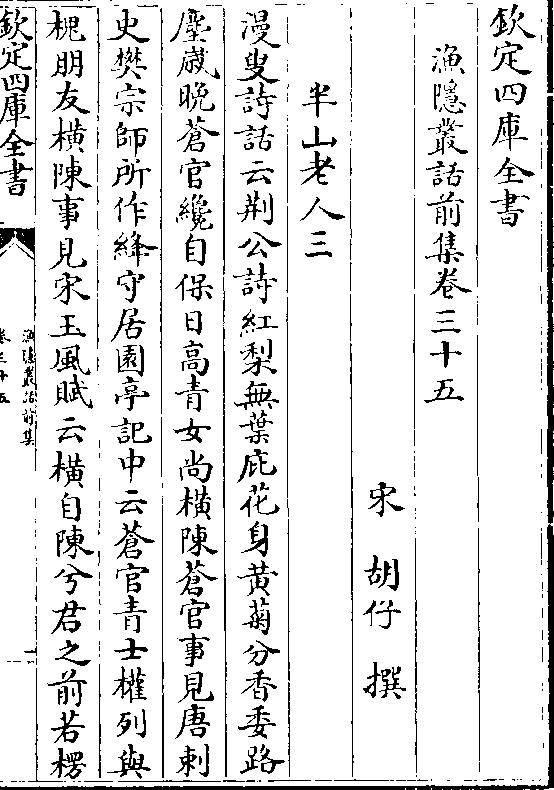 欽定四庫全書
漁隱叢話前集卷三十五
宋 胡仔 撰
半山老人三
漫叟詩話云荆公詩紅梨無葉庇花身黄菊分香委路
塵歳晩蒼官纔自保日高青女尚横陳蒼官事見唐刺
史樊宗師所作絳守居園亭記中云蒼官青士權列與
槐朋友横陳事見宋玉風賦云横自陳兮君之前若楞
欽定四庫全書
漁隱叢話前集
卷三十五